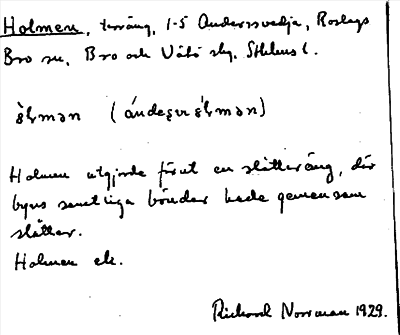 Holmen, terräng, 1-5 Andersvedja, Roslags
Bro sn, Bro och Vätö skg, Sthlms l.
(ándeʂvɛ
Holmen utgjorde förut en slåtteräng, där
byns samtliga bönder hade gemensam
slåtter.
Holmen ek.
Richard Norrman 1929.